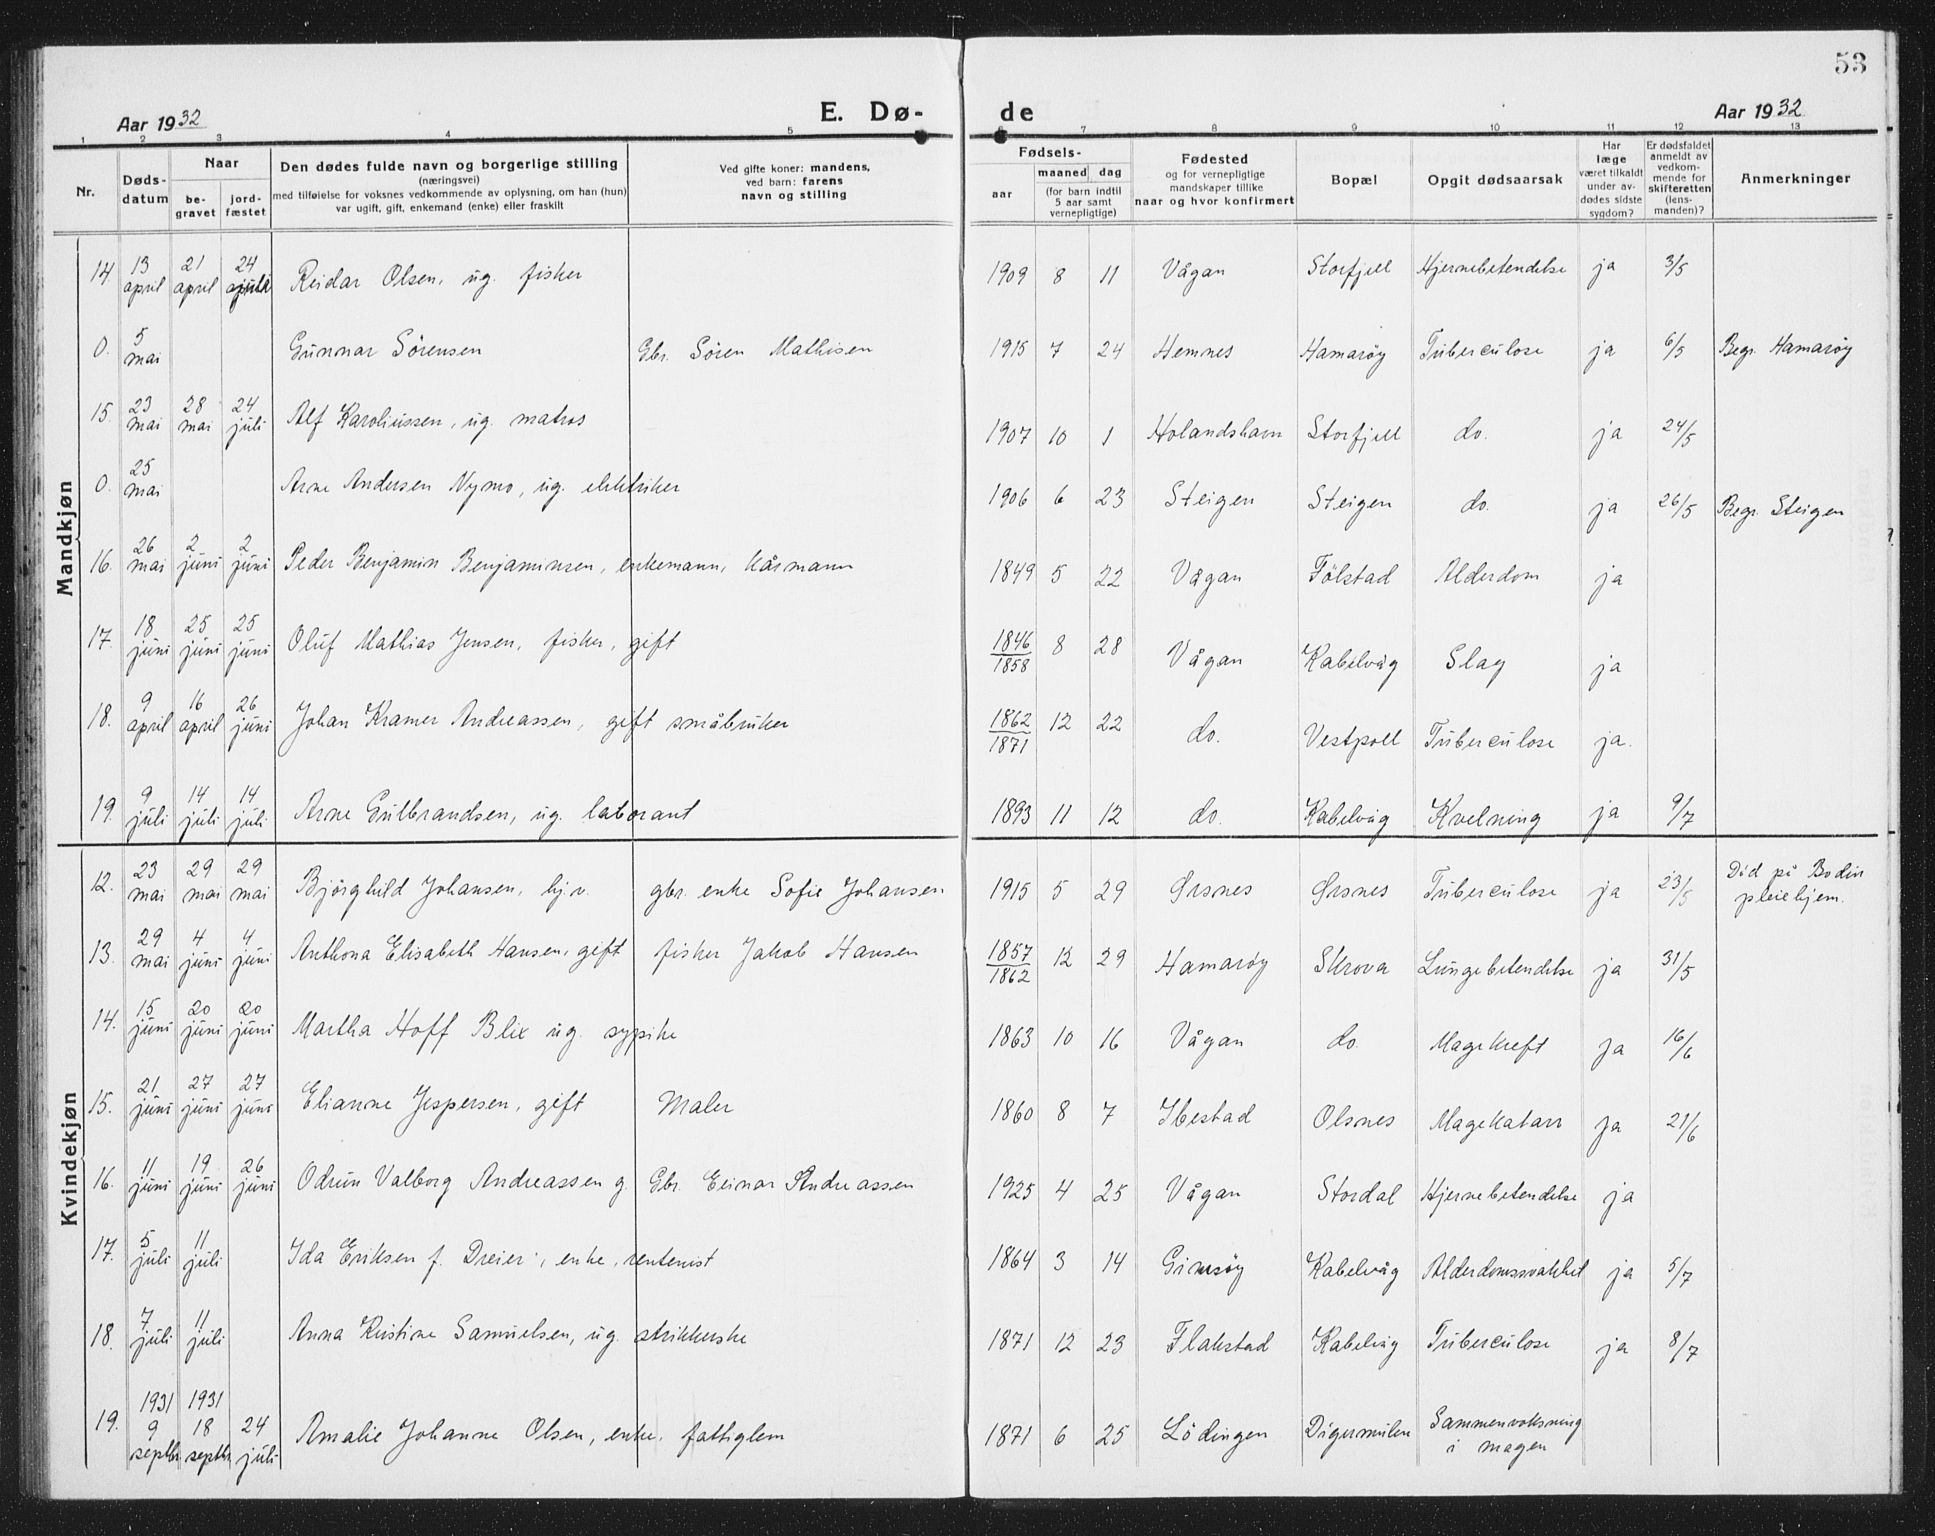 53
Aar 1932 E. Dø- de Aar 1932
1 2 3 4 5 6 7 8 9 10 11 12 13
Nr. Døds-datum Naar be-gravet jord-fæstet Den dødes fulde navn og borgerlige stilling (næringsvei) med tilføielse for voksnes vedkommende av oplysning, om han (hun) var ugift, gift, enkemand (enke) eller fraskilt Ved gifte koner: mandens, ved barn: farens navn og stilling Fødsels- aar maaned dag (for barn indtil 5 aar samt vernepligtige) Fødested og for vernepligtige mandskaper tillike naar og hvor konfirmert Bopæl Opgit dødsaarsak Har læge været tilkaldt under av-dødes sidste sygdom? Er dødsfaldet anmeldt av vedkom-mende for skifteretten (lens-manden)? Anmerkninger
Mandkjøn
14. 13 april 21 april 24 juli Reidar Olsen, ug. fisker 1909 8 11 Vågan Storfjell Hjernebetendelse ja 3/5
0. 5 mai Gunnar Sörensen Gbr. Sören Mathisen 1915 7 24 Hemnes Hamarøy Tuberculose ja 6/5 Begr. Hamarøy
15. 23 mai 28 mai 24 juli Alf Karoliussen, ug. matros 1907 10 1 Holandshavn Storfjell do. ja 24/5
0. 25 mai Arne Andersen Nymo, ug. elektriker 1906 6 23 Steigen Steigen do. ja 26/5 Begr. Steigen
16. 26 mai 2 juni 2 juni Peder Benjamin Benjaminsen, enkemann, kårmann 1849 5 22 Vågan Fölstad Alderdom ja
17. 18 juni 25 juni 25 juni Oluf Mathias Jensen, fisker, gift 1846/1858 8 28 Vågan Kabelvåg Slag ja
18. 9 april 16 april 26 juni Johan Kramer Andreassen, gift småbruker 1862/1871 12 22 do. Vestpoll Tuberculose ja.
19. 9 juli 14 juli 14 juli Arne Gulbrandsen, ug. laborant 1893 11 12 do. Kabelvåg Kvelning ja 9/7
Kvindekjøn
12. 23 mai 29 mai 29 mai Bjørghild Johansen, hj.v. gbr. enke Sofie Johansen 1915 5 29 Ørsnes Ørsnes Tuberculose ja 23/5 Död på Bodin pleiehjem.
13. 29 mai 4 juni 4 juni Anthona Elisabeth Hansen, gift fisker Jakob Hansen 1857/1862 12 29 Hamarøy Skrova Lungebetendelse ja 31/5
14. 15 juni 20 juni 20 juni Martha Hoff Blix ug. sypike 1863 10 16 Vågan do. Magekreft ja 16/6
15. 21 juni 27 juni 27 juni Elianne Jespersen, gift Maler 1860 8 7 Ibestad Olsnes Magekatarr ja 21/6
16. 11 juni 19 juni 26 juni Odrun Valborg Andreassen g. Gbr. Einar Andreassen 1925 4 25 Vågan Stordal Hjernebetendelse ja
17. 5 juli 11 juli Ida Eriksen f. Dreier, enke, rentenist 1864 3 14 Gimsöy Kabelvåg Alderdomssvakhet ja 5/7
18. 7 juli 11 juli Anna Kristine Samuelsen, ug. strikkerske 1871 12 23 Flakstad Kabelvåg Tuberculose ja 8/7
19. 1931 9 septbr. 1931 18 septbr. 24 juli Amalie Johanne Olsen, enke, fattiglem 1871 6 25 Lödingen Digermulen Sammenvoksning i magen